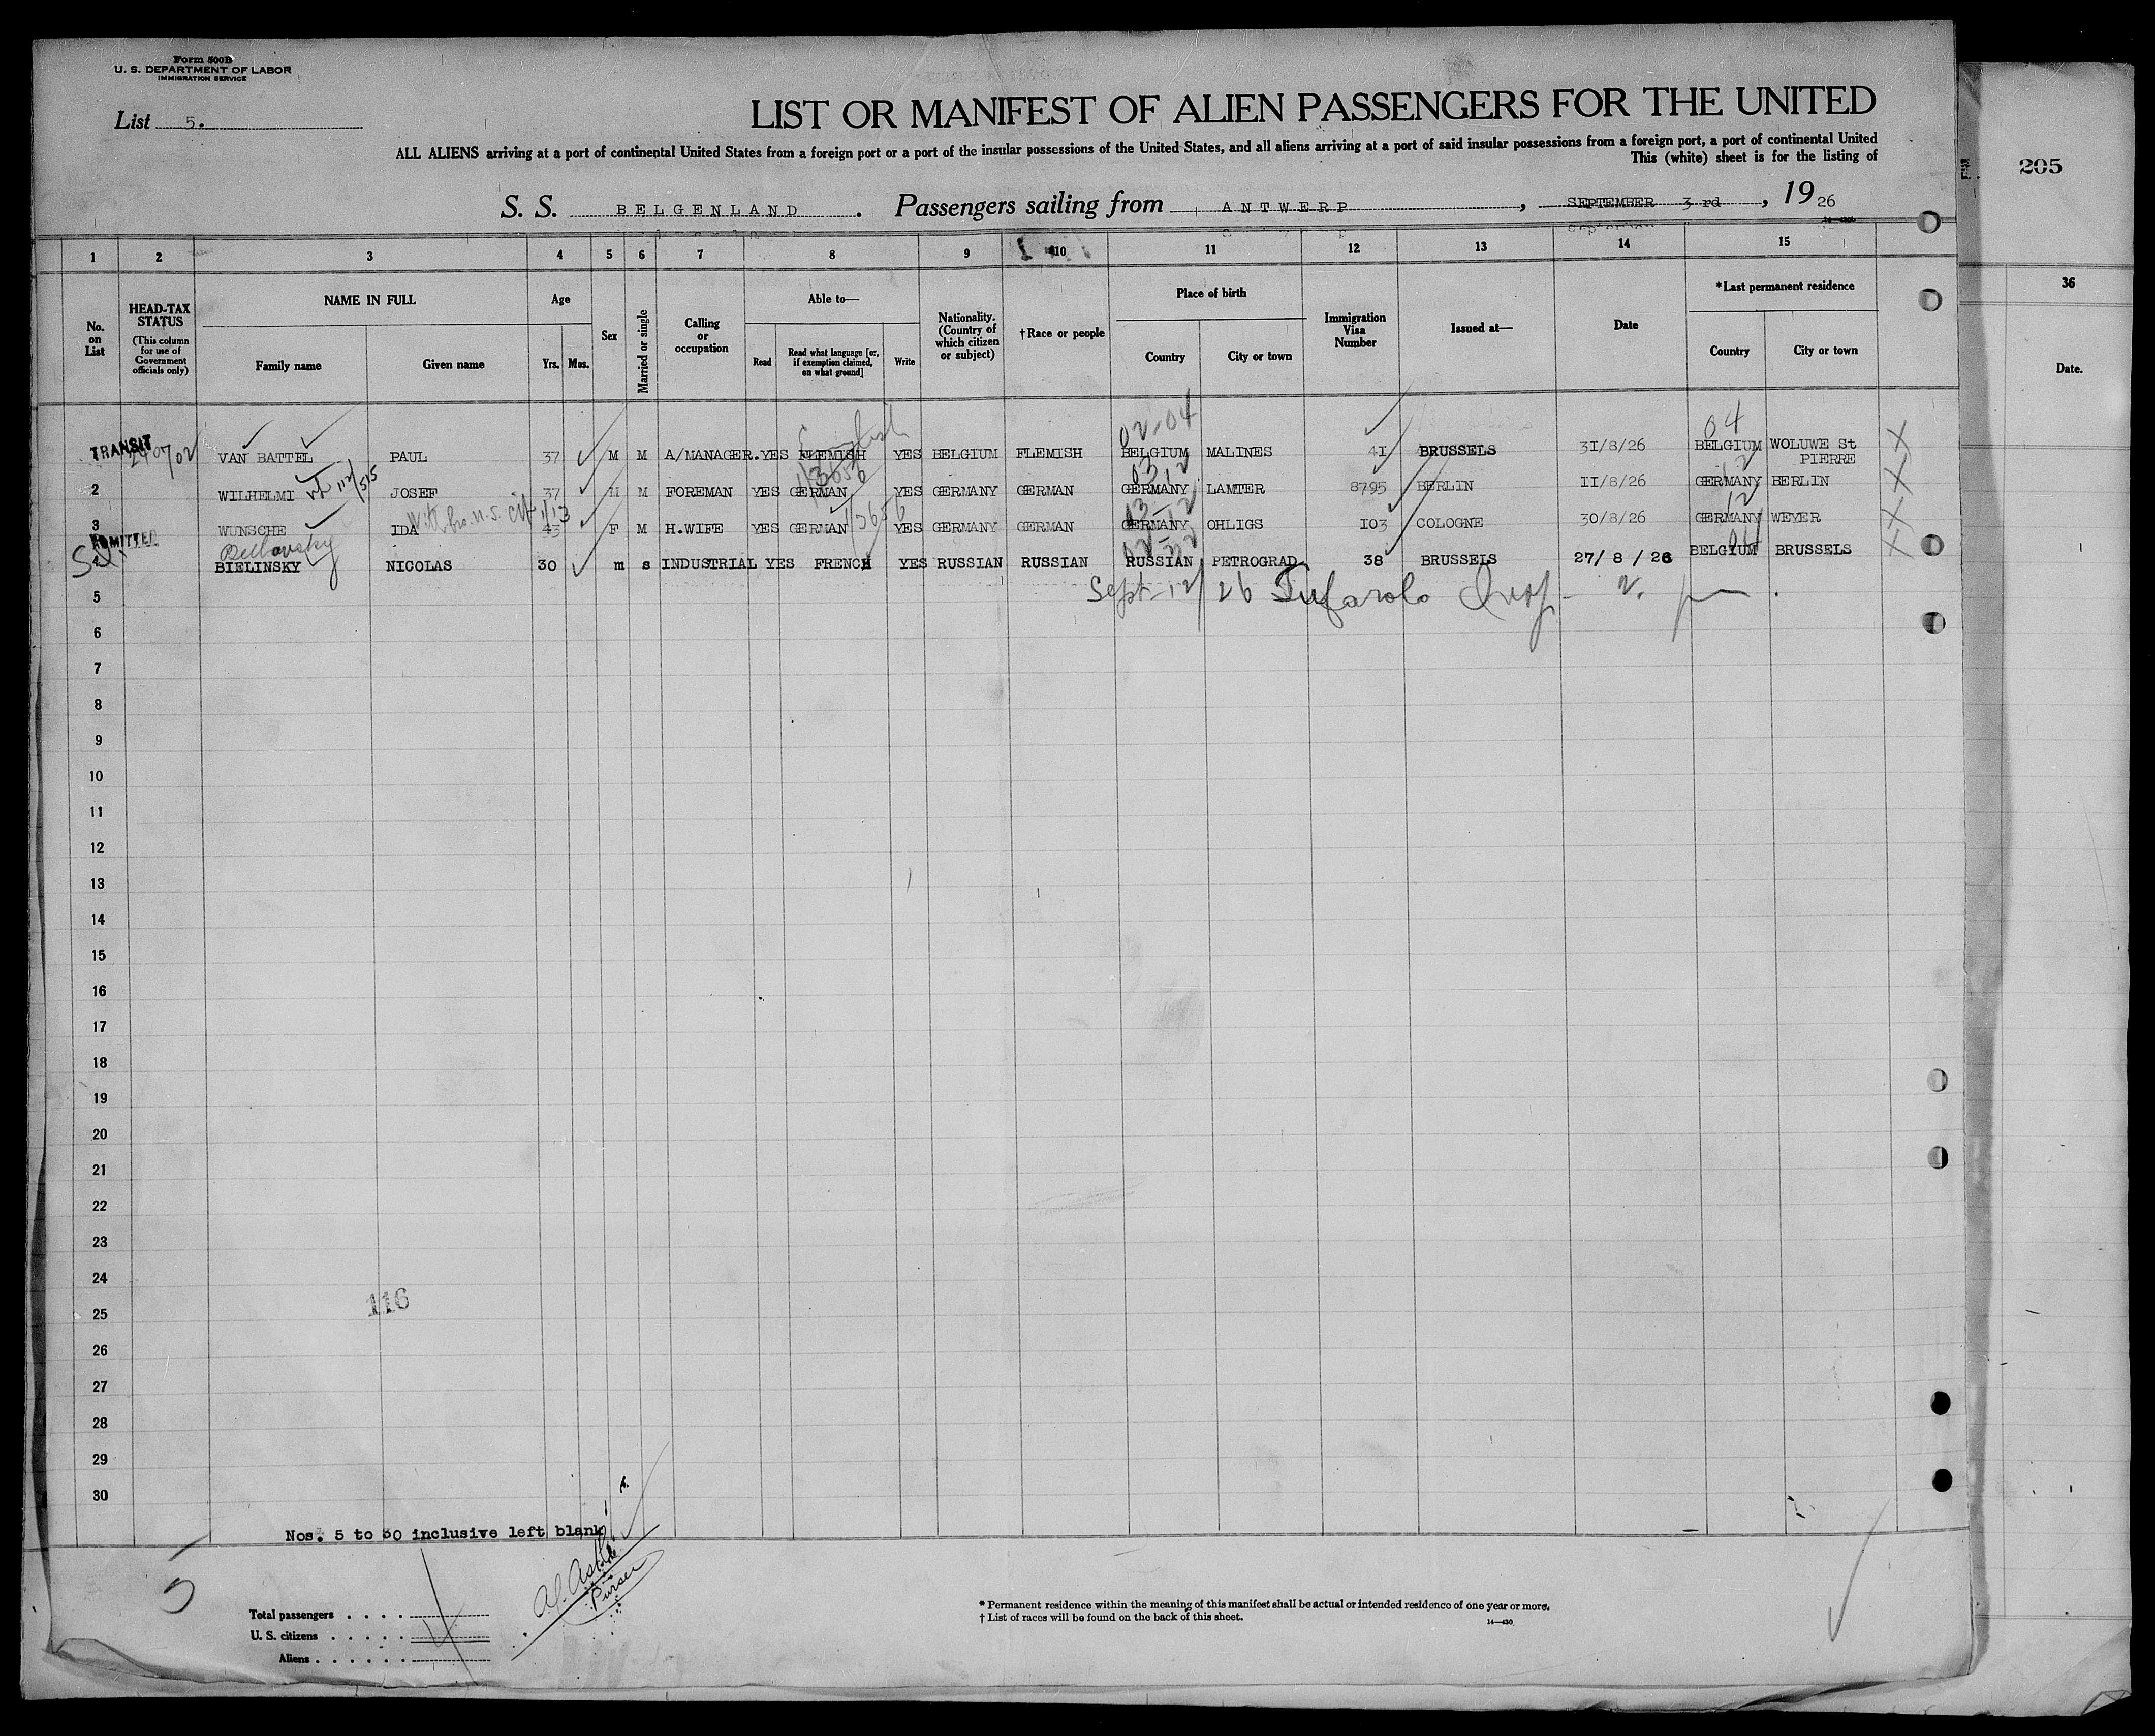 Form 500B
U. S. DEPARTMENT OF LABOR
IMMIGRATION SERVICE
List 5.
LIST OR MANIFEST OF ALIEN PASSENGERS FOR THE UNITED
ALL ALIENS arriving at a port of continental United States from a foreign port or a port of the insular possessions of the United States, and all aliens arriving at a port of said insular possessions from a foreign port, a port of continental United
This (white) sheet is for the listing of
205
S. S. BELGENLAND . Passengers sailing from ANTWERP , SEPTEMBER 3 rd , 19 26
1 2 3 4 5 6 7 8 9 10 11 12 13 14 15
36
No. on List
HEAD-TAX STATUS
(This column for use of Government officials only)
NAME IN FULL
Family name Given name
Age
Yrs. Mos.
Sex
Married or single
Calling or occupation
Able to—
Read
Read what language [or, if exemption claimed, on what ground]
Write
Nationality. (Country of which citizen or subject)
†Race or people
Place of birth
Country City or town
Immigration Visa Number
Issued at—
Date
*Last permanent residence
Country City or town
Date.
English 02-04 04
TRANSIT VAN BATTEL PAUL 37 M M A/MANAGER. YES FLEMISH YES BELGIUM FLEMISH BELGIUM MALINES 41 BRUSSELS 31/8/26 BELGIUM WOLUWE St PIERRE
2 WILHELMI JOSEF 37 M M FOREMAN YES GERMAN YES GERMANY GERMAN GERMANY LAMTER 8795 BERLIN II/8/26 GERMANY BERLIN
3 WUNSCHE IDA 43 F M H.WIFE YES GERMAN YES GERMANY GERMAN GERMANY OHLIGS I03 COLOGNE 30/8/26 GERMANY WEYER
ADMITTED
4 BIELINSKY NICOLAS 30 m s INDUSTRIAL YES FRENCH YES RUSSIAN RUSSIAN RUSSIAN PETROGRAD 38 BRUSSELS 27/ 8 / 26 BELGIUM BRUSSELS
5 Sept-12/26
6
7
8
9
10
11
12
13
14
15
16
17
18
19
20
21
22
23
24
116
25
26
27
28
29
30
Nos. 5 to 30 inclusive left blank
Purser
5
Total passengers . . . . 4
U. S. citizens . . . . .
Aliens . . . . . .
* Permanent residence within the meaning of this manifest shall be actual or intended residence of one year or more.
† List of races will be found on the back of this sheet.
14—430